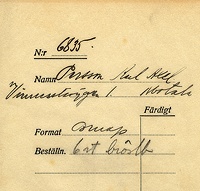 N:r 6835.
Namn Persson Karl Axel
1. Motala
Färdigt
Format
Beställn. 6 st